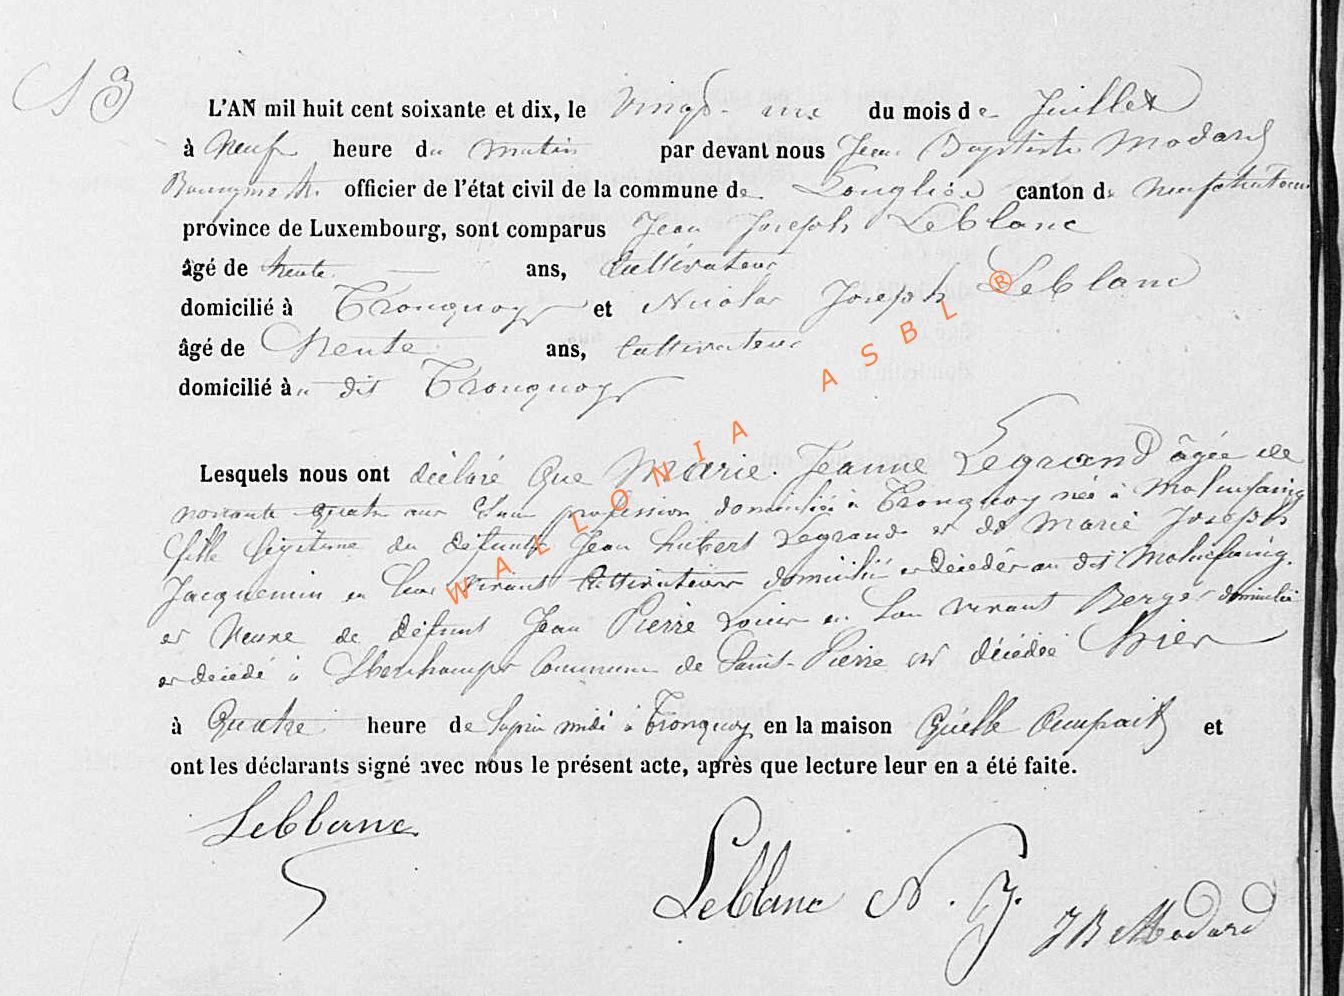 13
L'AN mil huit cent soixante et dix, le vingt six du mois de Juillet
à Neuf heure du Matin par devant nous Jean Baptiste Modard
Bourgmestre officier de l'état civil de la commune de Longlier canton de Neufchâteau
province de Luxembourg, sont comparus Jean Joseph Leblanc
âgé de trente ans, Cultivateur
domicilié à Tronquoy et Nicolas Joseph Leblanc
âgé de trente ans, Cultivateur
domicilié à u dit Tronquoy
Lesquels nous ont déclaré que Marie Jeanne Legrand âgée de
nonante quatre ans sans profession domiciliée à Tronquoy née à Molinfaing
fille légitime de défunts Jean Hubert Legrand et de Marie Joseph
Jacquemin en leur vivant Cultivateurs domiciliés et décédés au dit Molinfaing.
et Veuve de défunt Jean Pierre en Son vivant Berger domicilié
et décédé à Commune de Saint-Pierre est décédée Hier
à Quatre heure de l'après midi à Tronquoy en la maison qu'elle occupait et
ont les déclarants signé avec nous le présent acte, après que lecture leur en a été faite.
Leblanc
Leblanc N. J.
JB Modard
WALLONIA ASBL ®